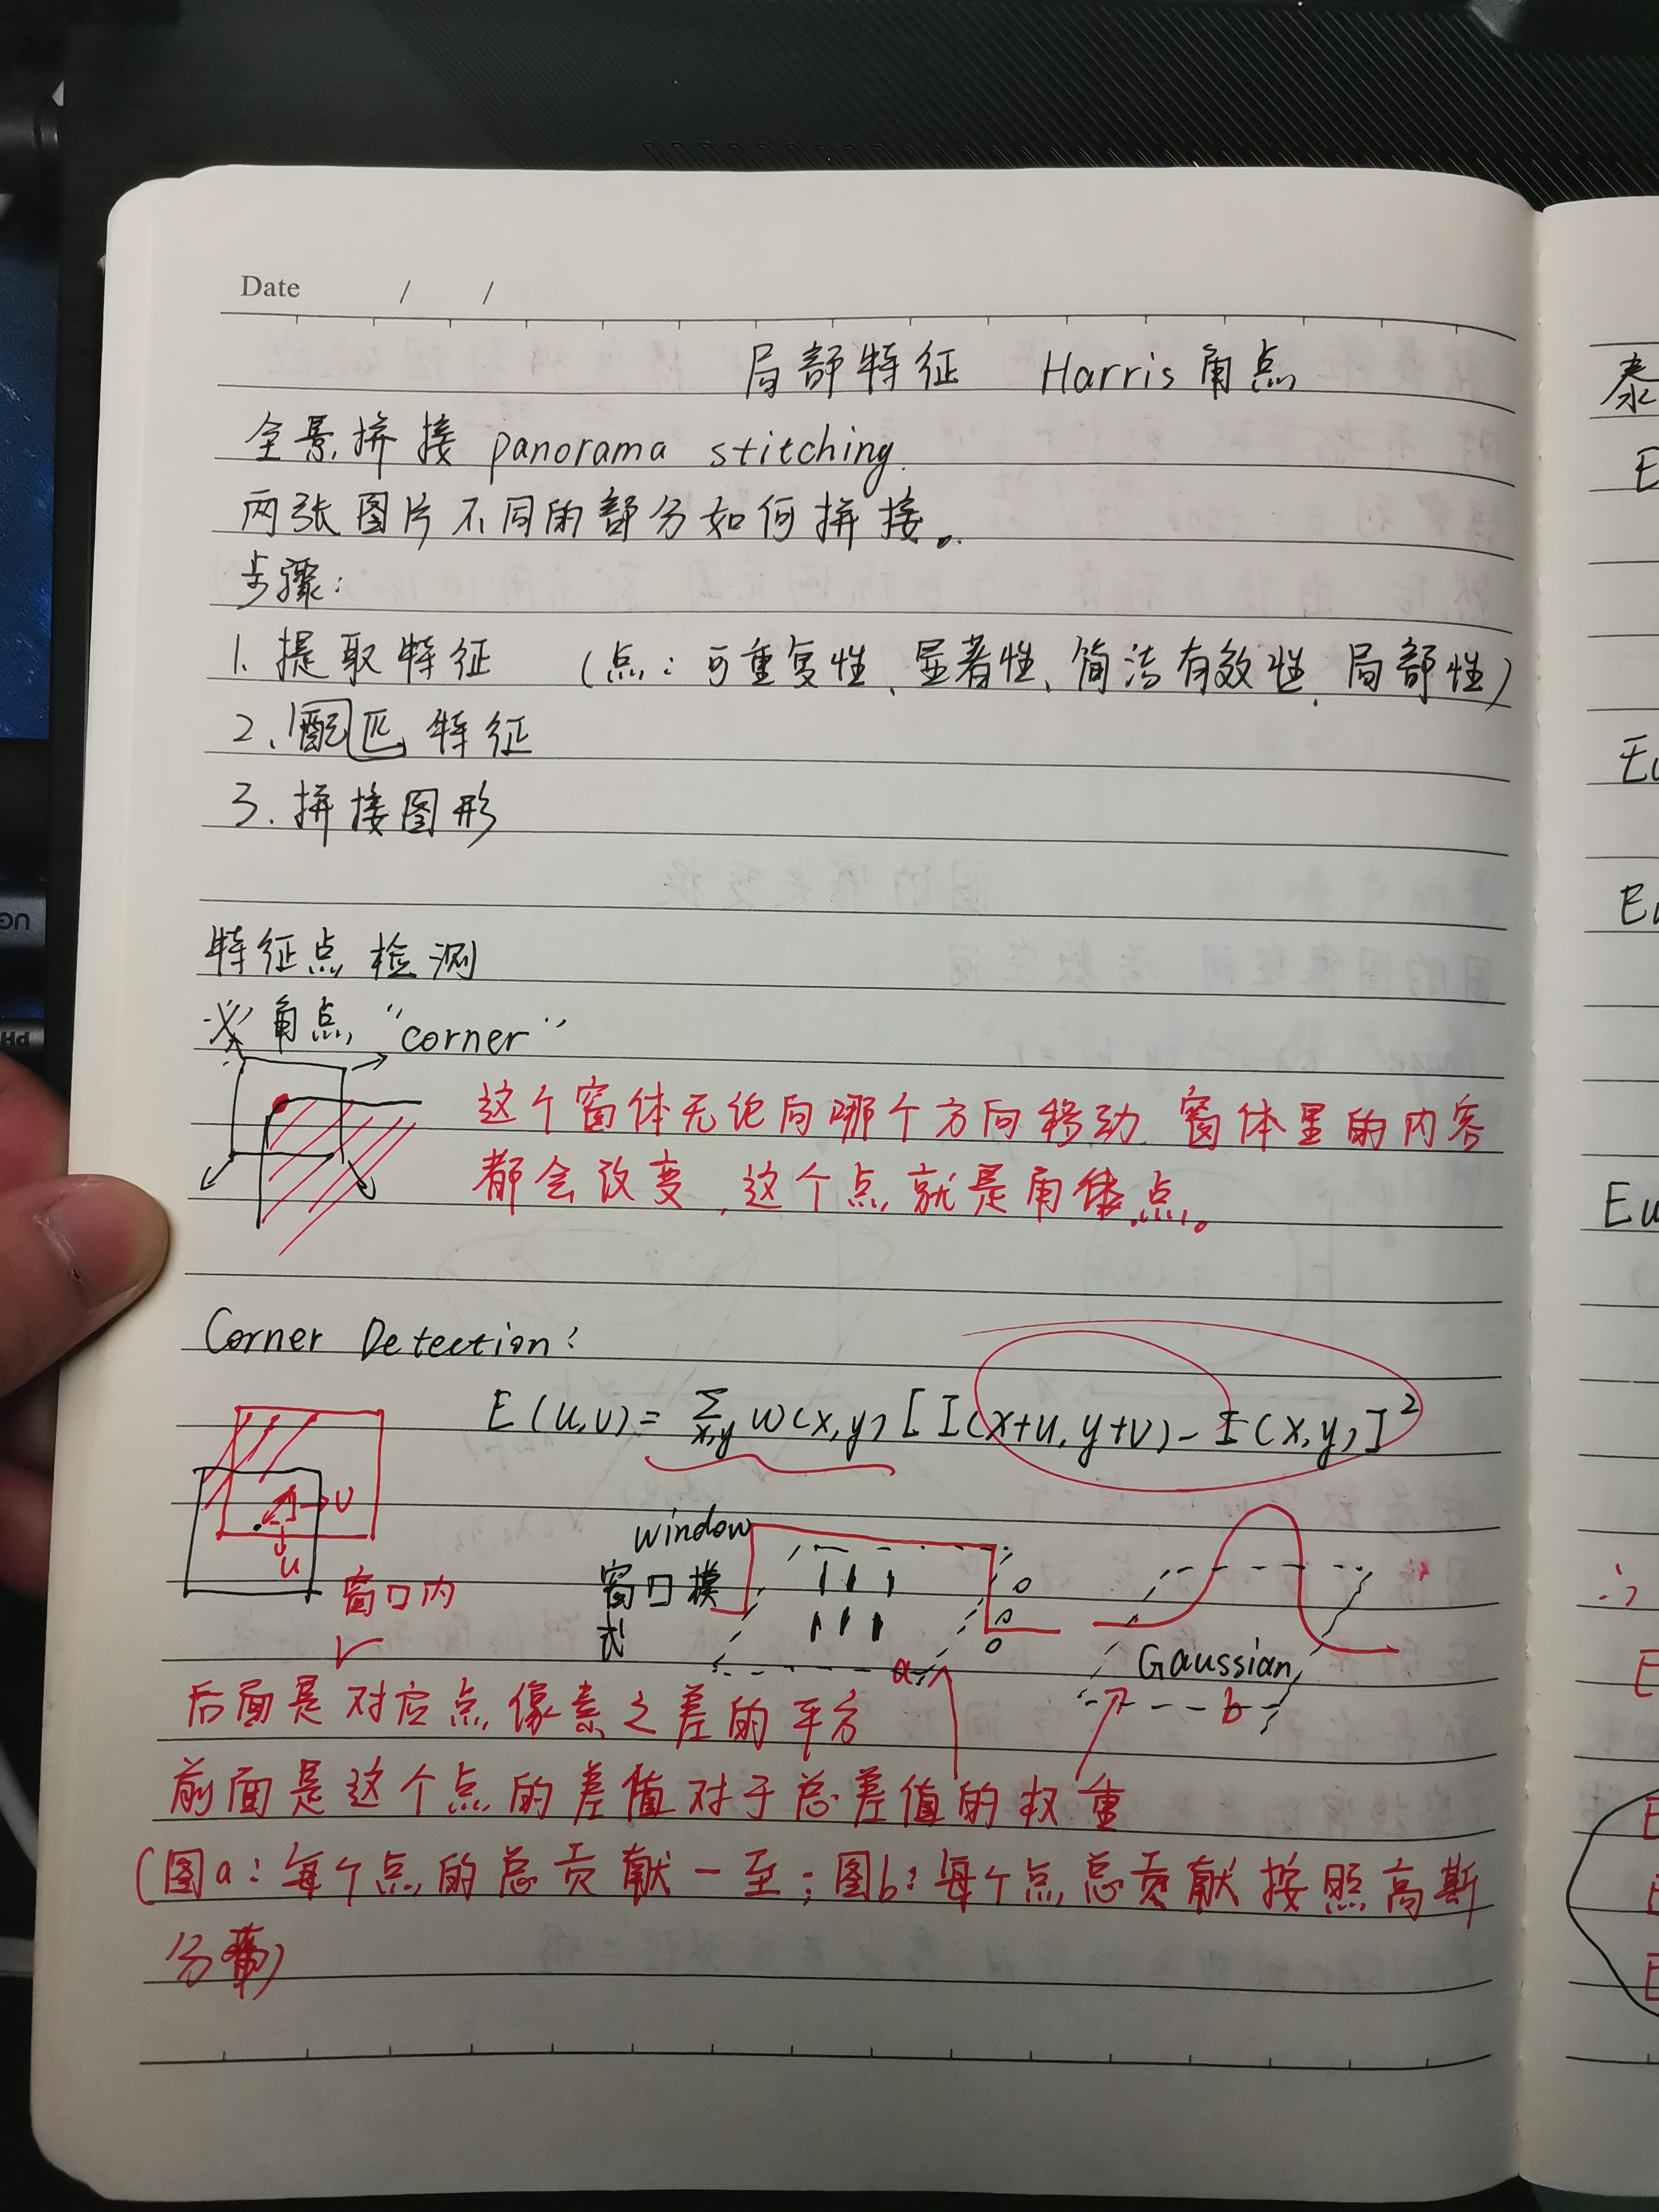 Date / /
局部特征 Harris角点
全景拼接 panorama stitching.
两张图片不同的部分如何拼接。
步骤:
1. 提取特征 (点: 可重复性、显著性、简洁有效性、局部性)
2. 配匹特征
3. 拼接图形
特征点检测
※ 角点 "corner"
这个窗体无论向哪个方向移动, 窗体里的内容
都会改变, 这个点就是角点。
Corner Detection:
E(u,v) = Σ x,y w(x,y) [I(x+u, y+v) - I(x,y)]²
v
u
窗口内
window
窗口模
式
1 1 1
1 1 1
0
0
0
a
Gaussian
b
后面是对应点像素之差的平方
前面是这个点的差值对于总差值的权重
(图a: 每个点的总贡献一至; 图b: 每个点总贡献按照高斯
分布)
泰
E
Eu
Eu
Eu
∴
E
E
E
E
UG
PH